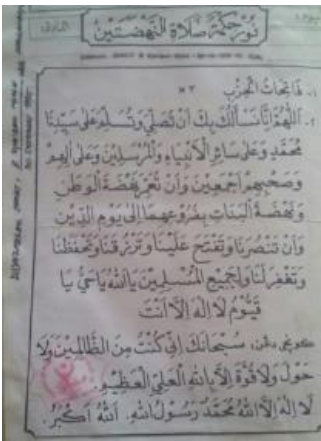 نور حكمة صلاة النهضتين
١- فَاتِحَاتُ الْحِزْبِ ×٣
٢- اَللّٰهُمَّ اِنَّا نَسْأَلُكَ بِكَ اَنْ تُصَلِّيَ وَتُسَلِّمَ عَلَى سَيِّدِنَا
مُحَمَّدٍ وَعَلَى سَائِرِ الْاَنْبِيَاءِ وَالْمُرْسَلِيْنَ وَعَلَى اٰلِهِمْ
وَصَحْبِهِمْ اَجْمَعِيْنَ وَاَنْ تُعَمِّرَ نَهْضَةَ الْوَطَنِ
وَنَهْضَةَ الْبَنَاتِ بِفُرُوْعِهِمَا اِلَى يَوْمِ الدِّيْنِ
وَاَنْ تَنْصُرَنَا وَتَفْتَحَ عَلَيْنَا وَتَرْزُقَنَا وَتَحْفَظَنَا
وَتَغْفِرَ لَنَا وَلِجَمِيْعِ الْمُسْلِمِيْنَ يَا اَللّٰهُ يَا حَيُّ يَا
قَيُّوْمُ لَا اِلٰهَ اِلَّا اَنْتَ
سُبْحَانَكَ اِنِّيْ كُنْتُ مِنَ الظَّالِمِيْنَ وَلَا
حَوْلَ وَلَا قُوَّةَ اِلَّا بِاللّٰهِ الْعَلِيِّ الْعَظِيْمِ.
لَا اِلٰهَ اِلَّا اللّٰهُ مُحَمَّدٌ رَسُوْلُ اللّٰهِ. اَللّٰهُ اَكْبَرُ.